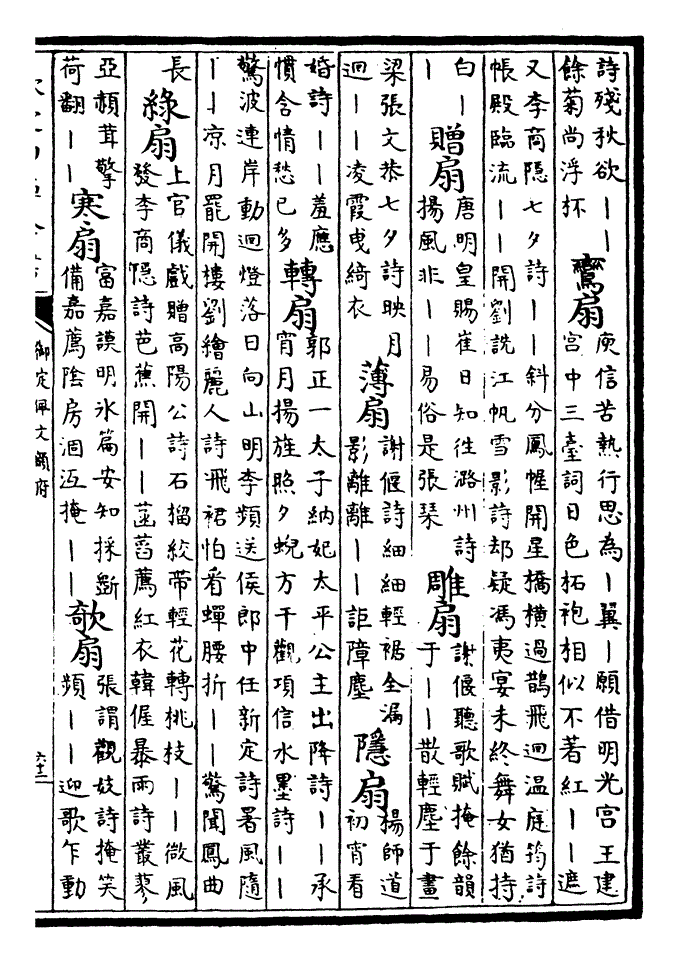 詩殘秋欲丨丨
餘菊尚浮杯
鸞扇
庾信苦熱行思為丨翼丨願借明光宮王建
宮中三臺詞日色柘袍相似不著紅丨丨遮
又李商隱七夕詩丨丨斜分鳳幄開星橋橫過鵲飛迴温庭筠詩
帳殿臨流丨丨開劉詵江帆雪影詩却疑馮夷宴未終舞女猶持
白丨
丨
贈扇
唐明皇賜崔日知往潞州詩
揚風非丨丨易俗是張琴
雕扇
謝偃聽歌賦掩餘韻
于丨丨散輕塵于畫
梁張文恭七夕詩映月
迴丨丨凌霞曵綺衣
薄扇
謝偃詩細細輕裾全漏
影離離丨丨詎障塵
隱扇
楊師道
初宵看
婚詩丨丨羞應
慣含情愁已多
轉扇
郭正一太子納妃太平公主出降詩丨丨承
宵月揚旌照夕蜺方干觀項信水墨詩丨丨
驚波連岸動迴燈落日向山明李頻送侯郎中任新定詩署風隨
丨丨凉月罷開樓劉繪麗人詩飛裙怕看蟬腰折丨丨驚聞鳳曲
長
綠扇
上官儀戲贈高陽公詩石榴絞帶輕花轉桃枝丨丨微風
發李商隱詩芭蕉開丨丨菡萏薦紅衣韓偓暴雨詩叢蓼
亞赬茸擎
荷翻丨丨
寒扇
富嘉謨明氷篇安知採斲
備嘉薦陰房涸沍掩丨丨
欹扇
張謂觀妓詩掩笑
頻丨丨迎歌乍動
御定佩文韻府
六十二